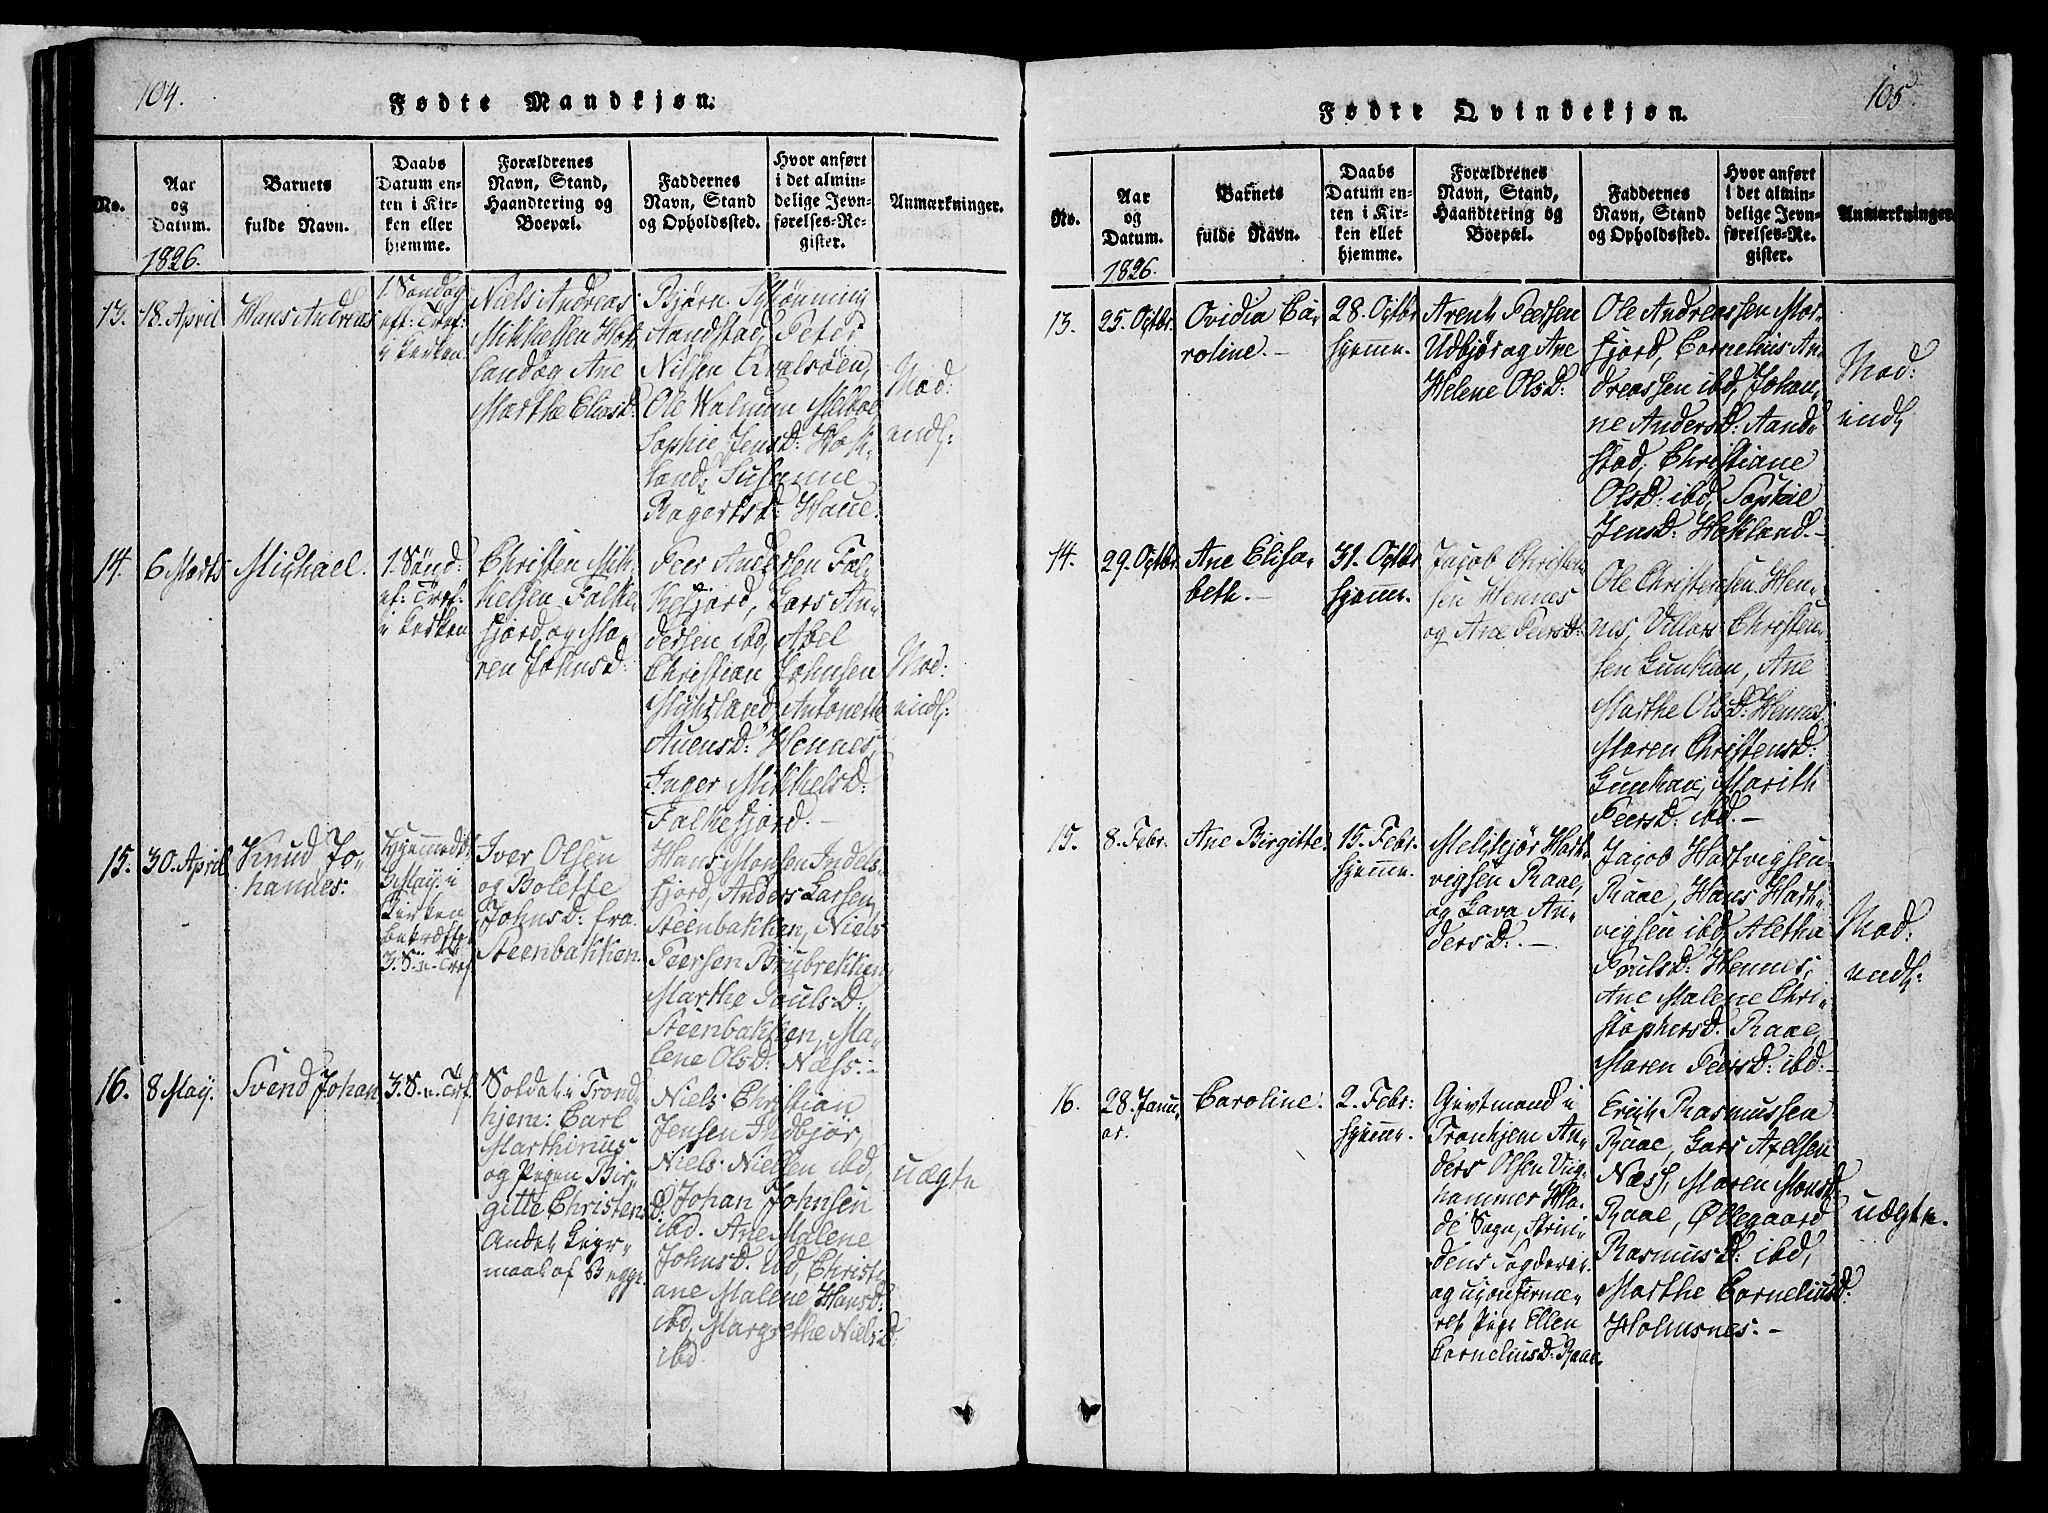 104.
Fødte Mandkjøn.
No.
Aar
og
Datum.
Barnets
fulde Navn.
Daabs
Datum en-
ten i Kir-
ken eller
hjemme.
Forældrenes
Navn, Stand,
Haandtering og
Boepæl.
Faddernes
Navn, Stand
og Opholdssted.
Hvor anført
i det almin-
delige Jevn-
førelses-Re-
gister.
Anmærkninger.
1826.
13.
18. April
Hans Andreas
1. Søndag
ef: Tref:
i Kirken
Niels Andreas
Mikkelsen Hok-
land og Ane
Marthe Eliasd:
Bjørn
Aandstad, Peter
Nilsen
Ole Walnum Melboe
Sophie Jensd: Hok-
land, Susanne
Ragertsd: Haue.
Mod:
indl:
14.
6 Marts
Michael.
1. Sönd:
ef: Tref:
i Kirken
Christen Mik-
kelsen Falke-
fjord og Ma-
ren Johnsd:
Peer Andersen Fal-
kefjord, Lars An-
dersen ibd, Abel
Christian Johnsen
Myhrland, Antonette
Auensd: Hennes,
Inger Mikkelsd:
Falkefjord.-
Mod:
indl:
15.
30. April
Knud Jo-
hannes:
3 May. i
Kirken
3. S. n. Tref
Iver Olsen
og Bolette
Johnsd: fra
Steenbakken.
Hans Monsen Indels-
fjord, Anders Larsen,
Steenbakken, Niels
Peersen Brubrekken
Marthe Poulsd:
Steenbakken, Ma-
lene Olsd: Næss.-
16.
8 May.
Svend Johan
3. S. n. Trf.
Soldat i Trond-
hjem: Carl
Marthinus
og Pigen Bir-
gitte Christensd.
Andet Leyr-
maal af Begge.
Niels Christian
Jensen Indbjör,
Niels Nielsen ibd,
Johan Johnsen
ibd. Ane Malene
Johnsd. ibd, Christi-
ane Malene Hansd:
ibd, Margrethe Nielsd.
ibd.
uægte
105.
Fødte Qvindekjøn.
No.
Aar
og
Datum.
Barnets
fulde Navn.
Daabs
Datum en-
ten i Kir-
ken eller
hjemme.
Forældrenes
Navn, Stand,
Haandtering og
Boepæl.
Faddernes
Navn, Stand
og Opholdssted.
Hvor anført
i det almin-
delige Jevn-
førelses-Re-
gister.
Anmærkninger
1826.
13.
25. Octbr.
Ovidia Ca-
roline.-
28. Octbr
hjemme.
Arent Peersen
Udbjør og Ane
Helene Olsd:
Ole Andreassen Mor-
fjord, Cornelius An-
dreassen ibd, Johan-
ne Andersd: Aand-
stad, Christiane
Olsd: ibd, Sophie
Jensd: Hokland.-
Mod:
indl:
14.
29. Octbr.
Ane Elisa-
beth.-
31. Octbr
hjemme.
Jacob Christen-
sen Hennes
og Ane Peersd:
Ole Christensen Hen-
nes, Villars Christen-
sen Kunkan, Ane
Marthe Olsd: Hennes,
Maren Christensd:
Kunkan, Marith
Peersd: ibd.-
15.
8. Febr.
Ane Birgitte.
15. Febr.
hjemme.
Melchejör Hart-
vigsen Raae,
og Lava An-
dersd.-
Jacob Hartvigsen
Raae, Hans Hart-
vigsen ibd, Aletha
Poulsd: Hennes,
Ane Malene Chri-
stophersd. Raae,
Maren Peersd: ibd:-
Mod:
indl:
16.
28. Janu-
ar.
Caroline.
2. Febr:
hjemme.
Gevtmand i
Tronhjem An-
ders Olsen Viig-
hammer
Sogn,
dens Fogderie.
og uconfirme-
ret Pige Ellen
Corneliusd: Raae.
Erich Rasmussen
Raae, Lars Axelsen
Næss, Maren Monsd.
Raae, Øllegaard
Rasmusd: ibd,
Marthe Corneliusd:
Holmsnes.-
uægte.